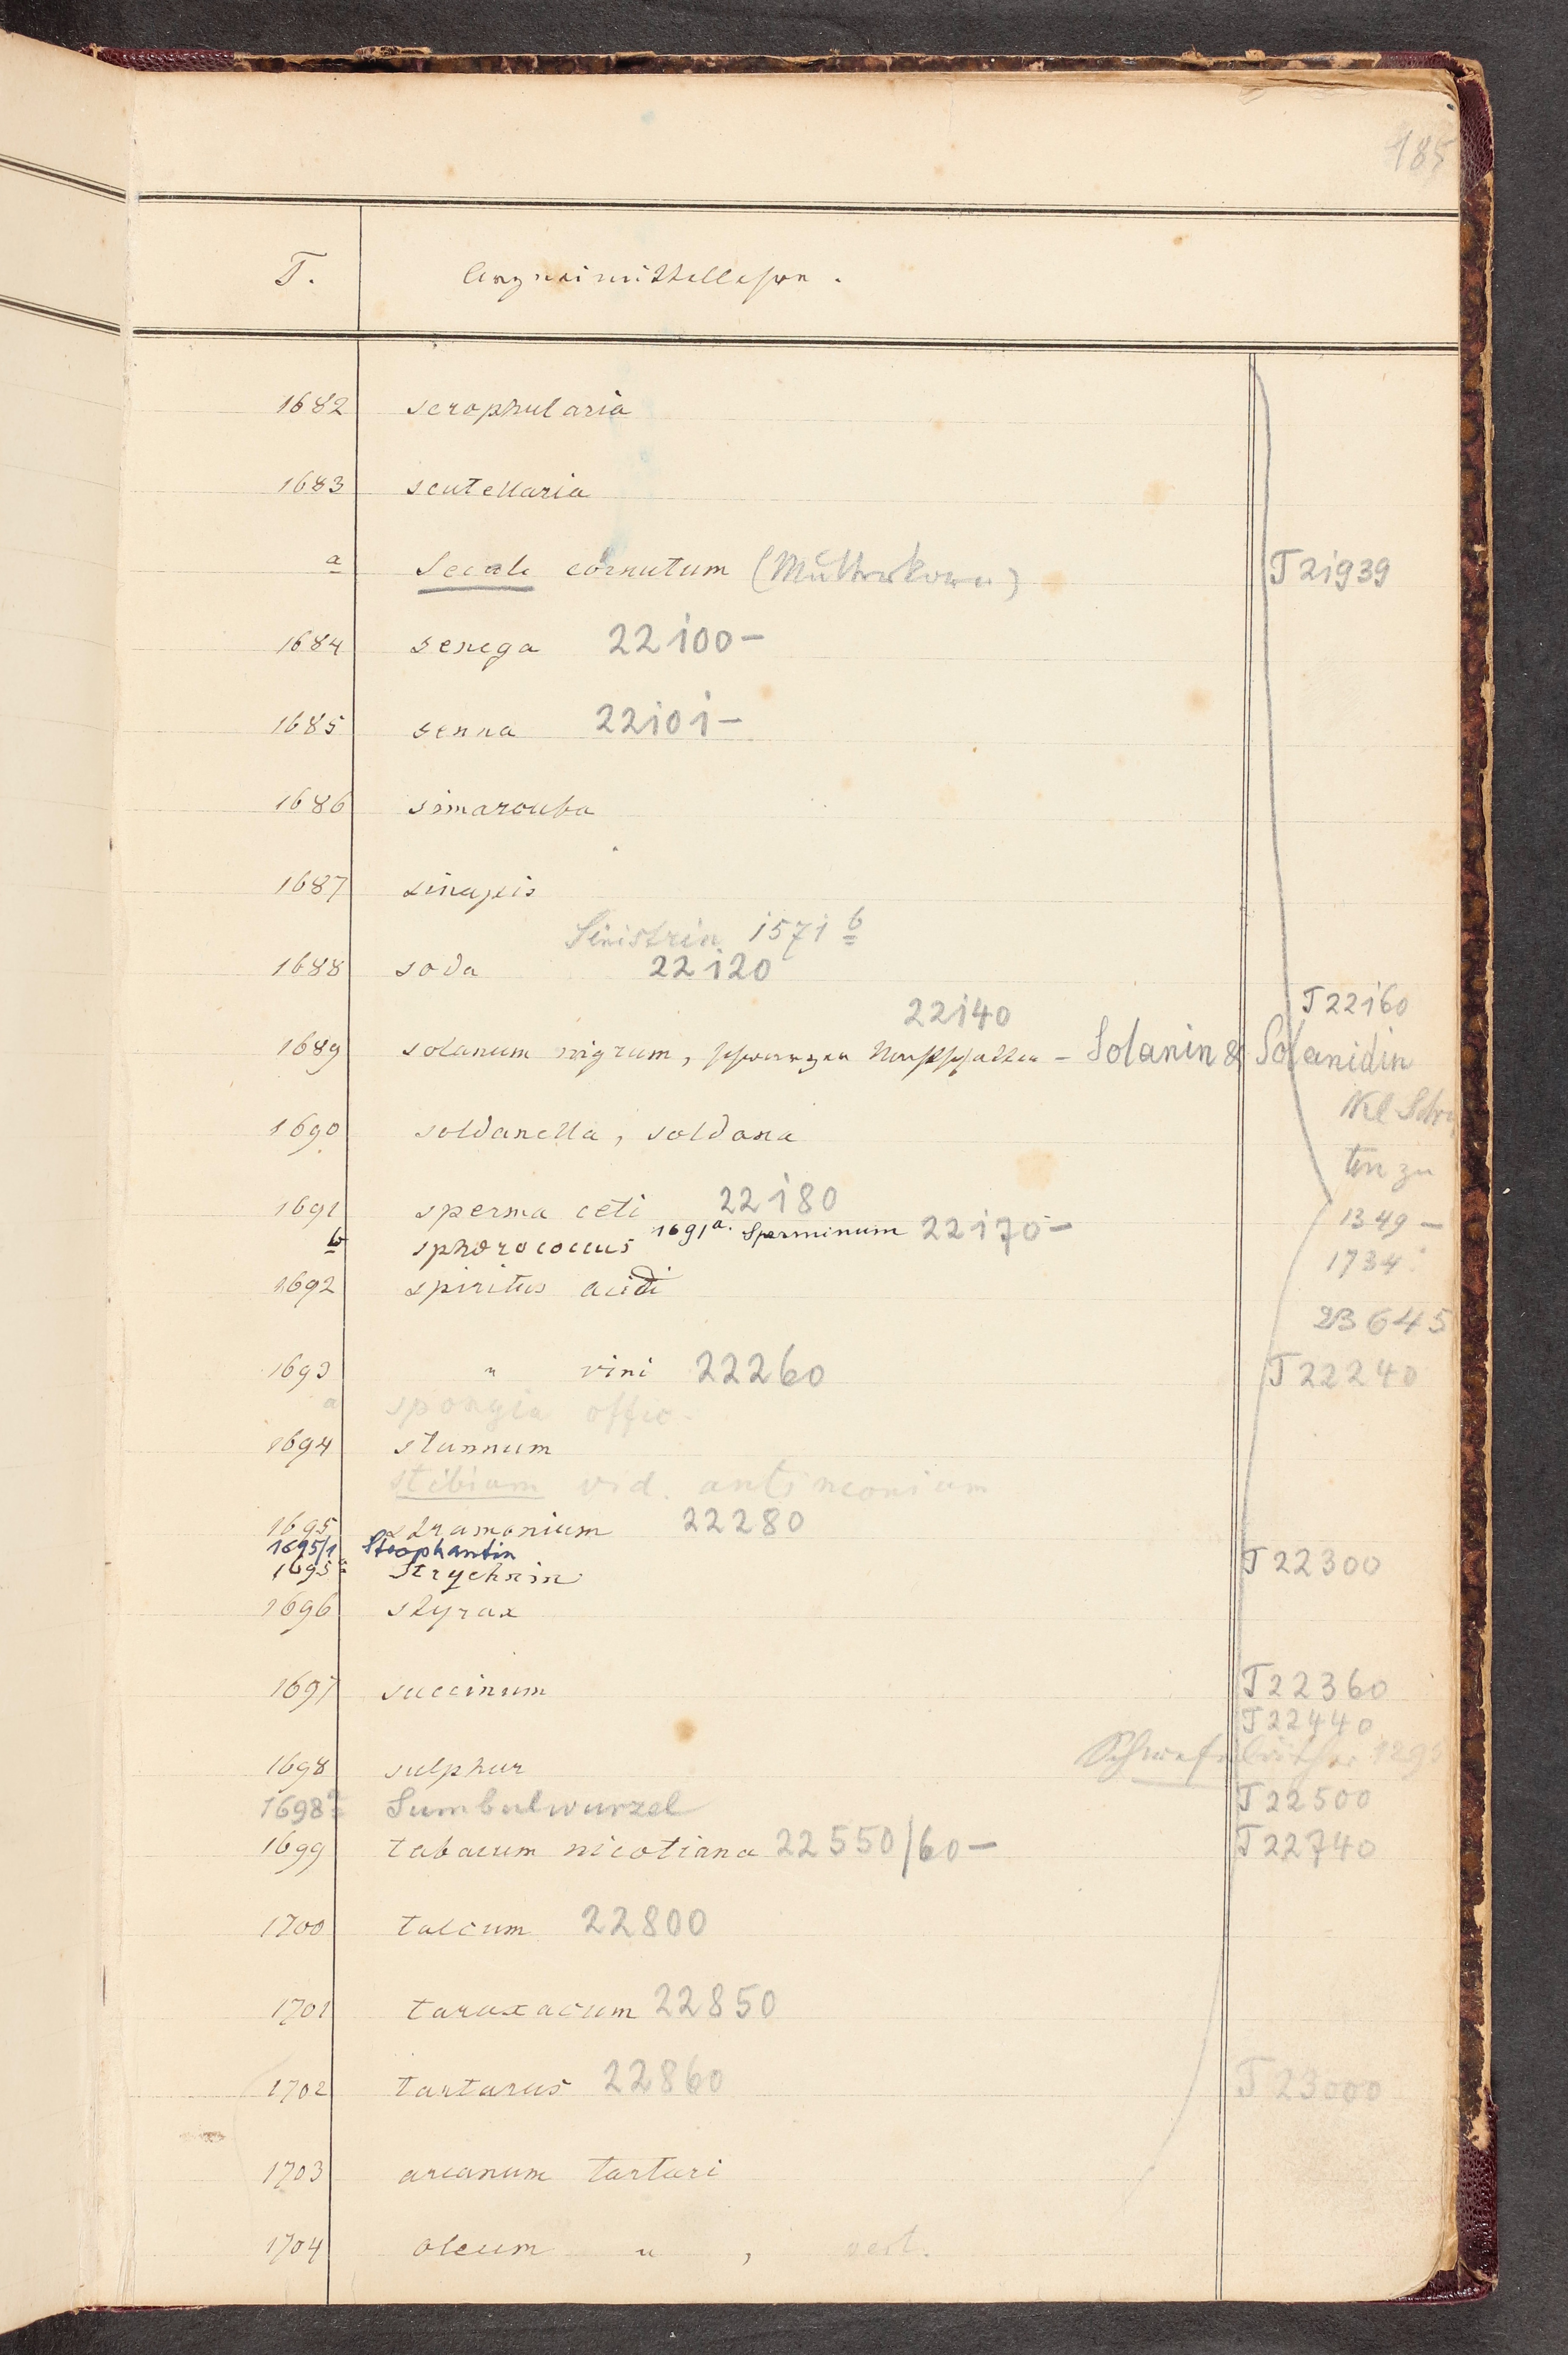 185
T. Arzneimittellehre.
1682 scrophularia
1683 scutellaria
a Secale cornutum (Mutterkorn) T 21939
1684 senega 22100 –
1685 senna 22101 –
1686 simarouba
1687 sinapis
Sinistrin 1571 b
1688 soda 22120
22140 T 22160
1689 solanum nigrum, schwarzer Nachtschatten – Solanin & Solanidin
Kl Schr
1690 soldanella, soldana
ten zu
1691 sperma ceti 22180 1349 –
b sphærococcus 1691a. Sperminum 22170 –
1734
1692 spiritus acidi
23645
1693 " vini 22260 T 22240
a spongia offic.
1694 stannum
stibium vid. antimonium
1695 stramonium 22280
1695/1 Strophantin
1695a Strychnin T 22300
1696 styrax
1697 succinum T 22360
T 22440
1698 sulphur
1698a Sumbulwurzel T 22500
1699 tabacum nicotiana 22550/60 – T 22740
1700 talcum 22800
1701 taraxacum 22850
1702 tartarus 22860 T 23000
1703 arcanum tartari
1704 oleum " ,